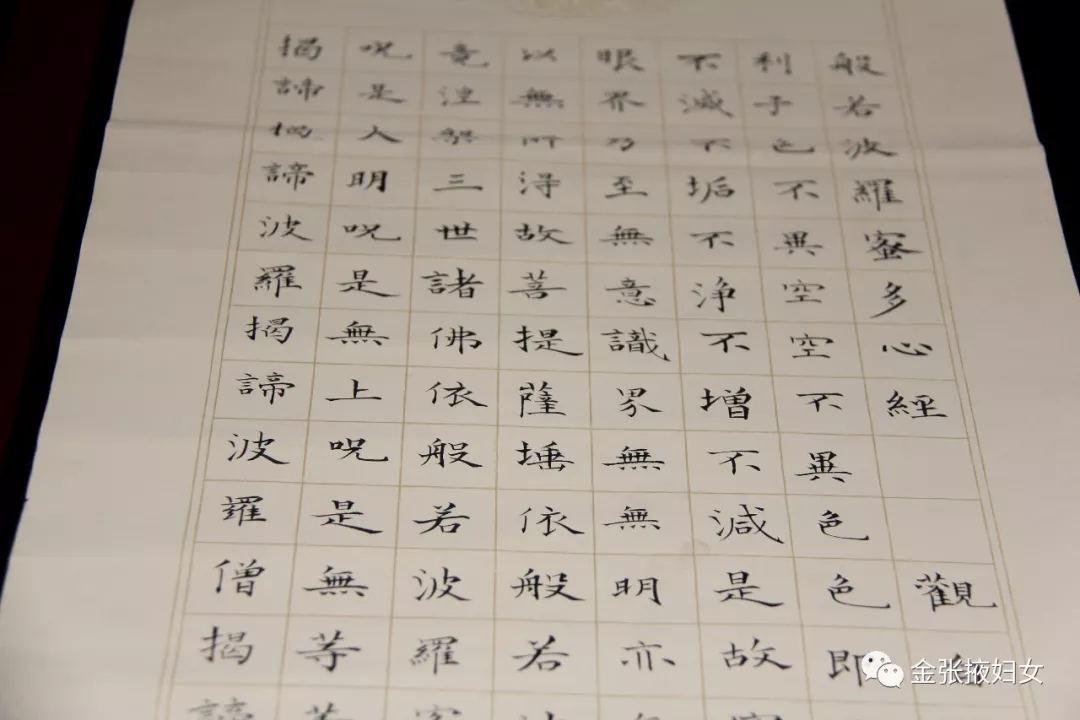 般若波羅蜜多心經觀
利子色不異空空不異色色即
不滅不垢不浄不增不減是故空
眼界乃至無意識界無無明亦
以無所得故菩提薩埵依般若波
竟涅槃三世諸佛依般若波羅蜜
呪是大明呪是無上呪是無等等
揭諦揭諦波羅揭諦波羅僧揭諦
金张掖妇女